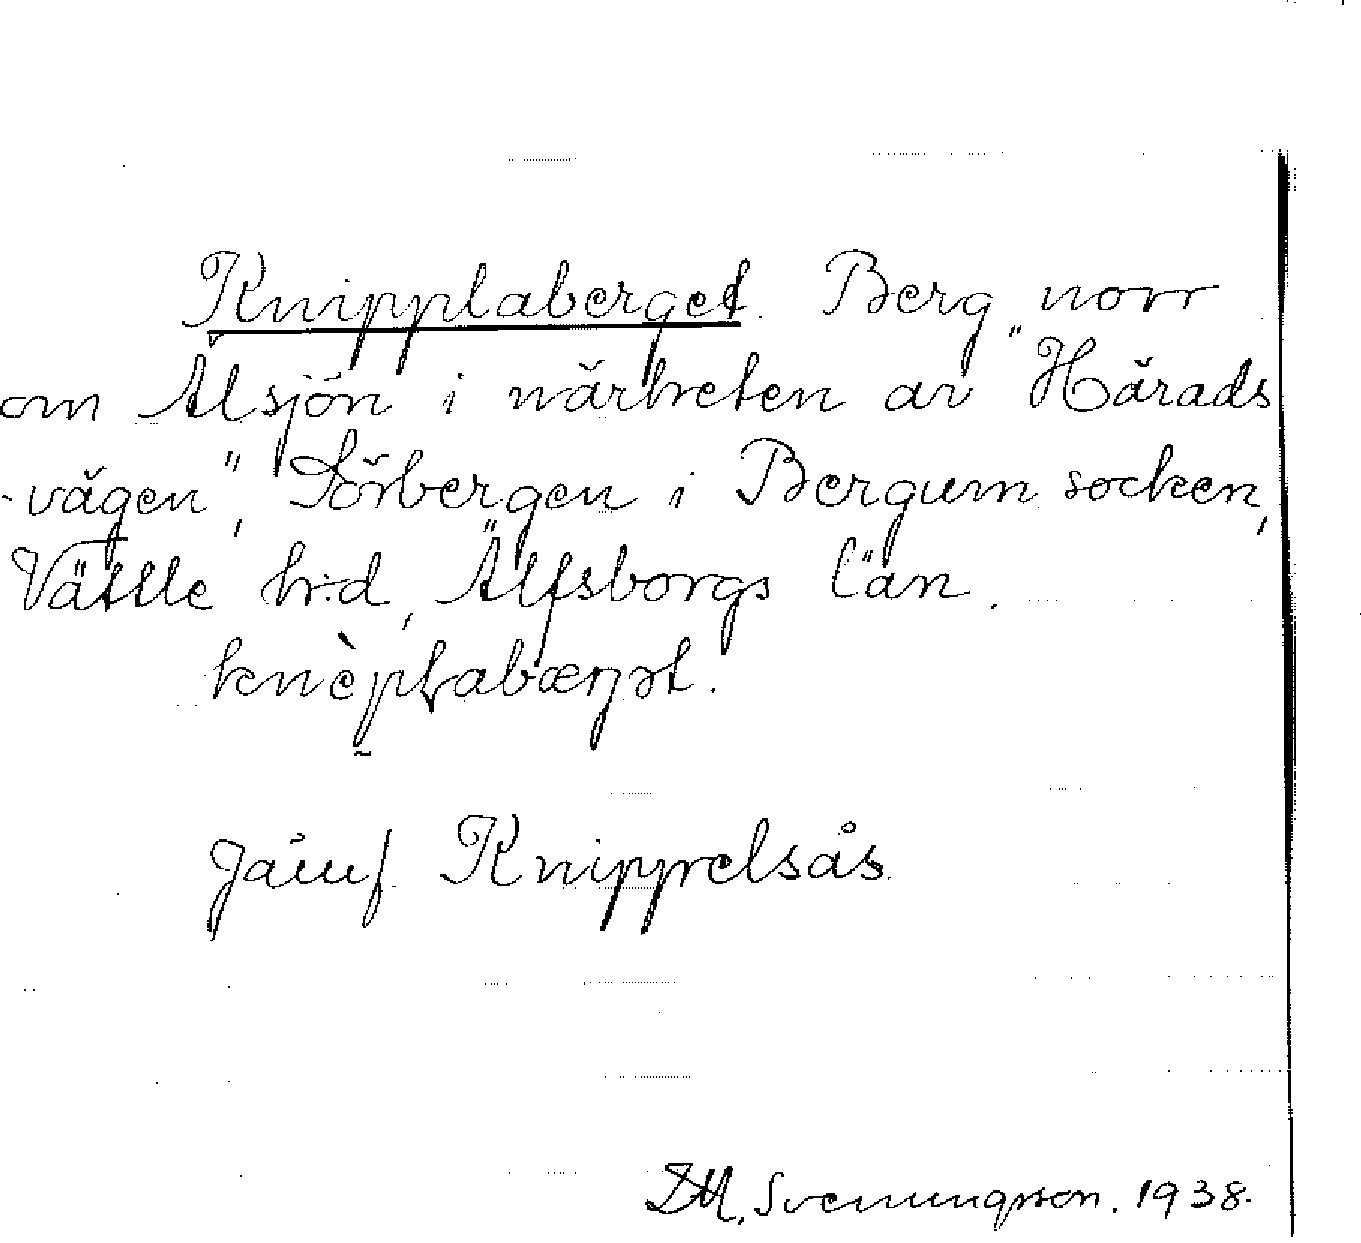 Knipplaberget. Berg norr
om Älsjön i närheten av "Härads
-vägen", Sörbergen i Bergum socken,
Vättle hrd, Älfsborgs län.
Jämf Knippelsås
Svenungsson. 1938.